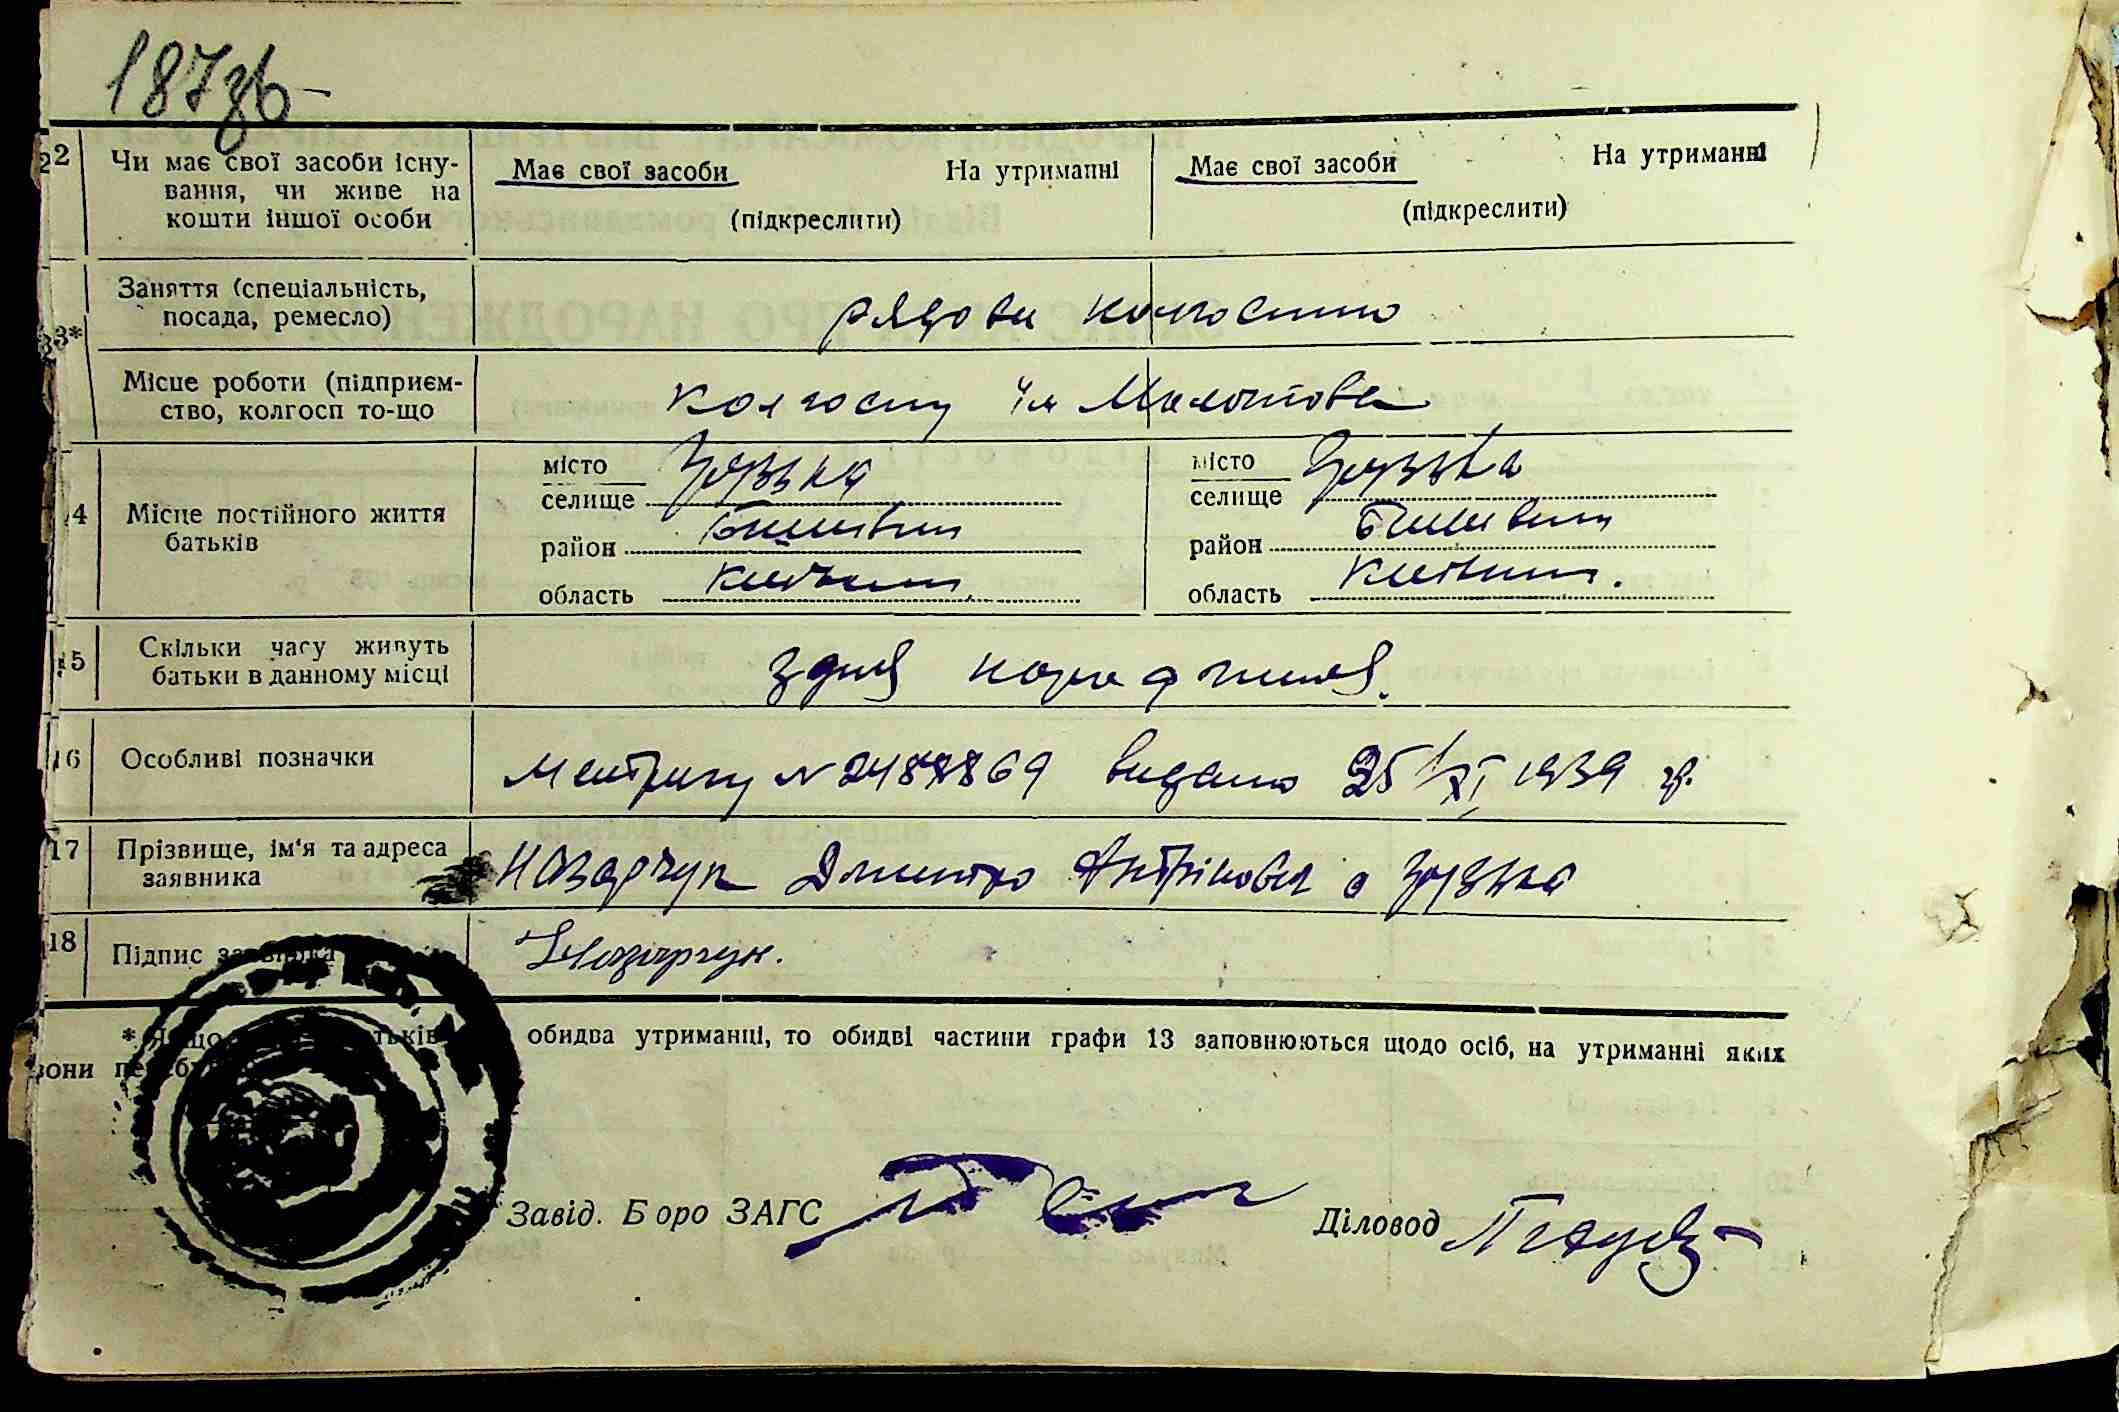 187зв
12 Чи має свої засоби існу-
вання, чи живе на
кошти іншої особи
Має свої засоби На утриманні
(підкреслити)
Має свої засоби На утриманні
(підкреслити)
13* Заняття (спеціальність,
посада, ремесло)
рядови колгоспно
Місце роботи (підприєм-
ство, колгосп то-що
колгоспу ім Молотова
14 Місце постійного життя
батьків
місто
селище
район
область
місто
селище
район
область
15 Скільки часу живуть
батьки в данному місці
здня народження.
16 Особливі позначки
Метрику № 2488869 видано 25/XI 1939 р.
17 Прізвище, ім'я та адреса
заявника
Назарчук Дмитро
18 Підпис заявника
Назарчук.
* Якщо батьків обидва утриманці, то обидві частини графи 13 заповнюються щодо осіб, на утриманні яких
вони
Завід. Бюро ЗАГС
Діловод